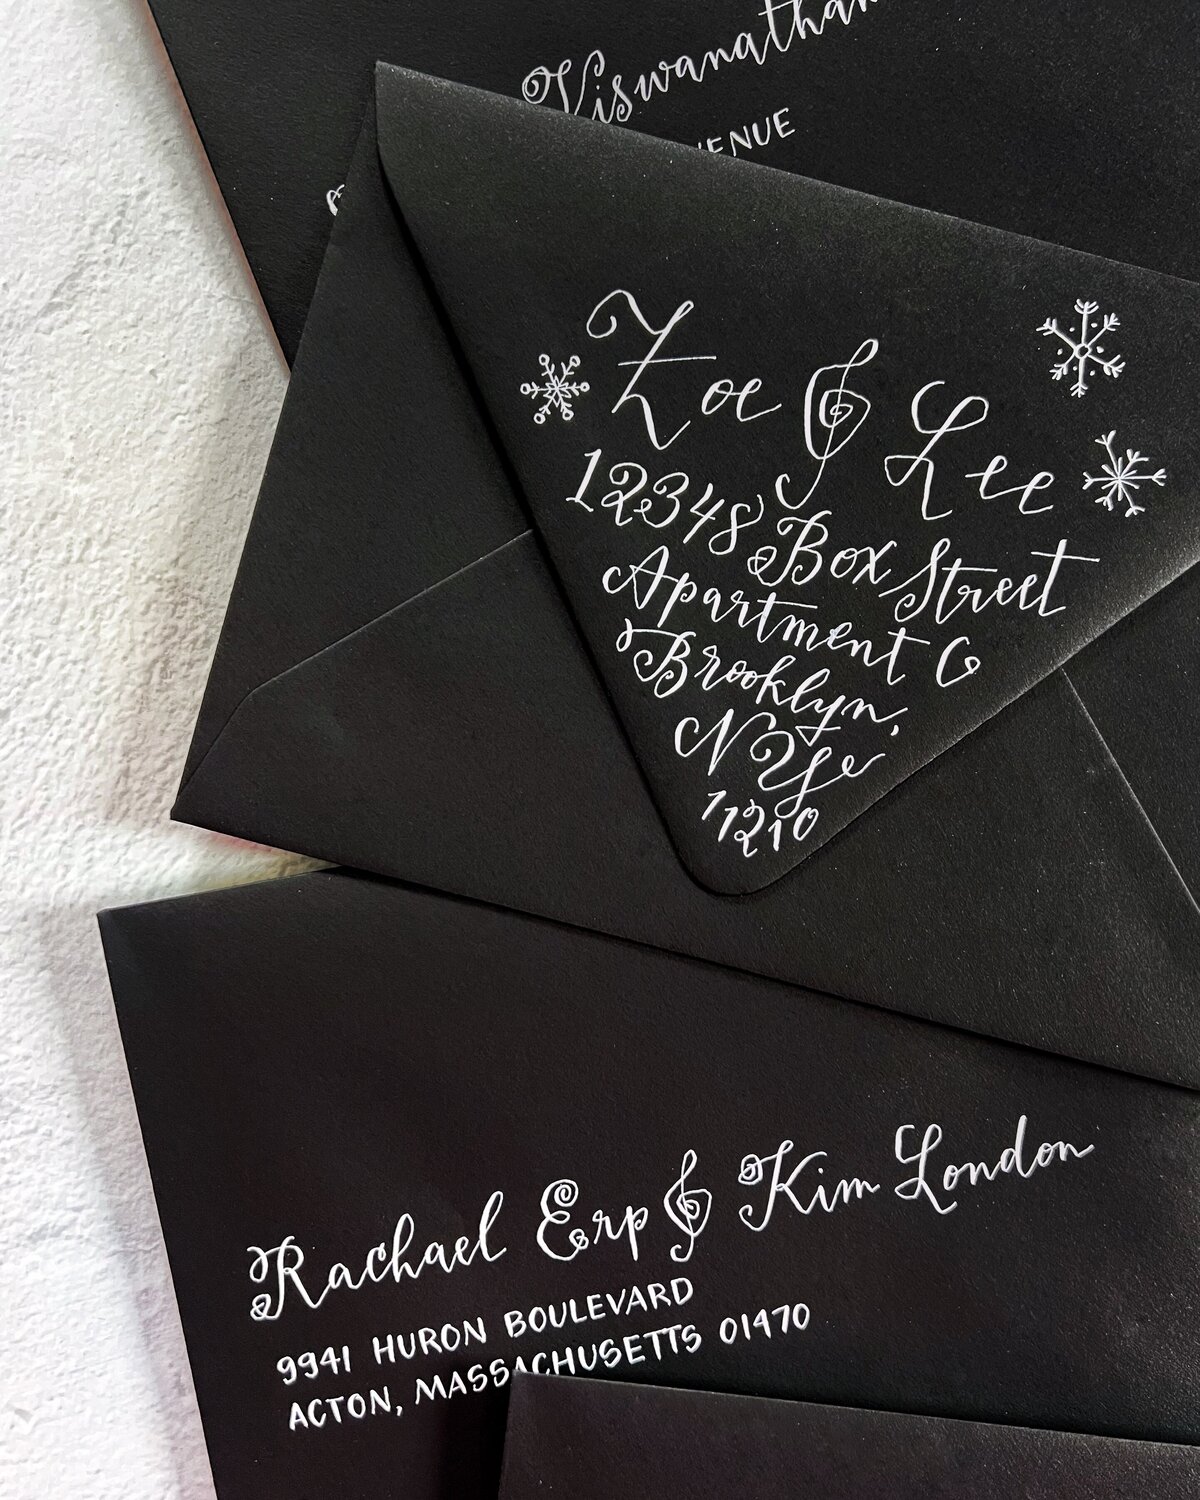 Viswanathan
Zoe & Lee
12348 Box Street
Apartment C
Brooklyn,
NY
11210
Rachael Erp & Kim London
9941 HURON BOULEVARD
ACTON, MASSACHUSETTS 01470